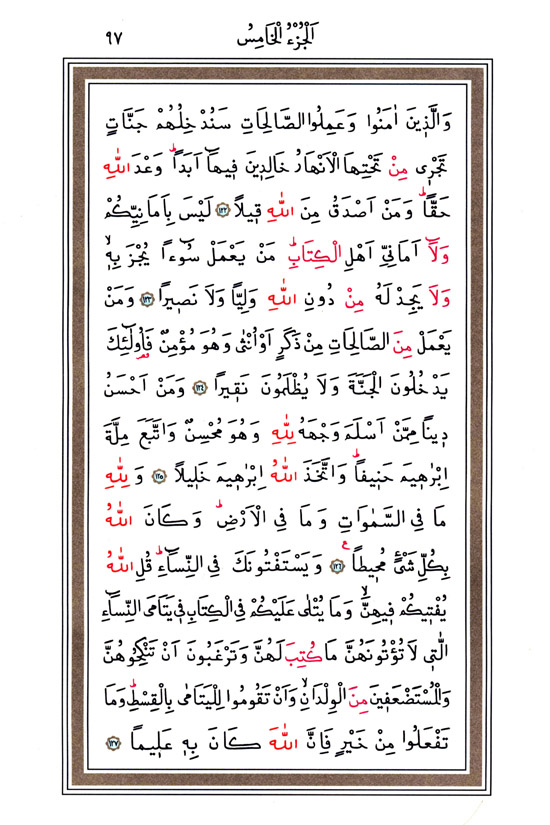 اَلْجُزْءُ الْخَامِسُ ٩٧
وَالَّذ۪ينَ اٰمَنُوا وَعَمِلُوا الصَّالِحَاتِ سَنُدْخِلُهُمْ جَنَّاتٍ
تَجْر۪ي مِنْ تَحْتِهَا الْاَنْهَارُ خَالِد۪ينَ ف۪يهَٓا اَبَدًاۜ وَعْدَ اللّٰهِ
حَقًّاۜ وَمَنْ اَصْدَقُ مِنَ اللّٰهِ ق۪يلًا ﴿١٢٢﴾ لَيْسَ بِاَمَانِيِّكُمْ
وَلَٓا اَمَانِيِّ اَهْلِ الْكِتَابِۜ مَنْ يَعْمَلْ سُٓوءًا يُجْزَ بِه۪ۙ
وَلَا يَجِدْ لَهُ مِنْ دُونِ اللّٰهِ وَلِيًّا وَلَا نَص۪يرًا ﴿١٢٣﴾ وَمَنْ
يَعْمَلْ مِنَ الصَّالِحَاتِ مِنْ ذَكَرٍ اَوْ اُنْثٰى وَهُوَ مُؤْمِنٌ فَاُو۬لٰٓئِكَ
يَدْخُلُونَ الْجَنَّةَ وَلَا يُظْلَمُونَ نَق۪يرًا ﴿١٢٤﴾ وَمَنْ اَحْسَنُ
د۪ينًا مِمَّنْ اَسْلَمَ وَجْهَهُ لِلّٰهِ وَهُوَ مُحْسِنٌ وَاتَّبَعَ مِلَّةَ
اِبْرٰه۪يمَ حَن۪يفًاۜ وَاتَّخَذَ اللّٰهُ اِبْرٰه۪يمَ خَل۪يلًا ﴿١٢٥﴾ وَلِلّٰهِ
مَا فِي السَّمٰوَاتِ وَمَا فِي الْاَرْضِۜ وَكَانَ اللّٰهُ
بِكُلِّ شَيْءٍ مُح۪يطًا۟ ﴿١٢٦﴾ وَيَسْتَفْتُونَكَ فِي النِّسَٓاءِۜ قُلِ اللّٰهُ
يُفْت۪يكُمْ ف۪يهِنَّۙ وَمَا يُتْلٰى عَلَيْكُمْ فِي الْكِتَابِ ف۪ي يَتَامَى النِّسَٓاءِ
الّٰت۪ي لَا تُؤْتُونَهُنَّ مَا كُتِبَ لَهُنَّ وَتَرْغَبُونَ اَنْ تَنْكِحُوهُنَّ
وَالْمُسْتَضْعَف۪ينَ مِنَ الْوِلْدَانِۙ وَاَنْ تَقُومُوا لِلْيَتَامٰى بِالْقِسْطِۜ وَمَا
تَفْعَلُوا مِنْ خَيْرٍ فَاِنَّ اللّٰهَ كَانَ بِه۪ عَل۪يمًا ﴿١٢٧﴾